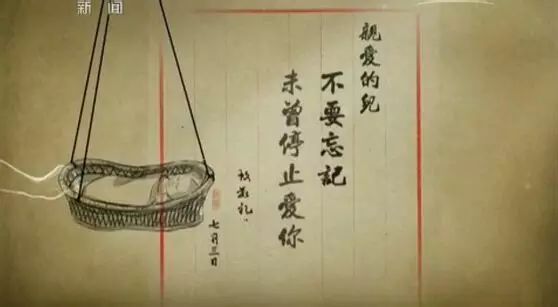 新闻
親爱的兒
不要忘記
未曾停止爱你
七月三日